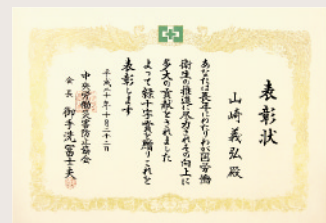 表彰状
山崎義弘殿
あなたは長年にわたりわが国労働
衛生の推進に尽力されその向上に
多大の貢献をされました
よって緑十字賞を贈りこれを
表彰します
平成二十年十月二十二日
中央労働災害防止協会
会長 御手洗冨士夫